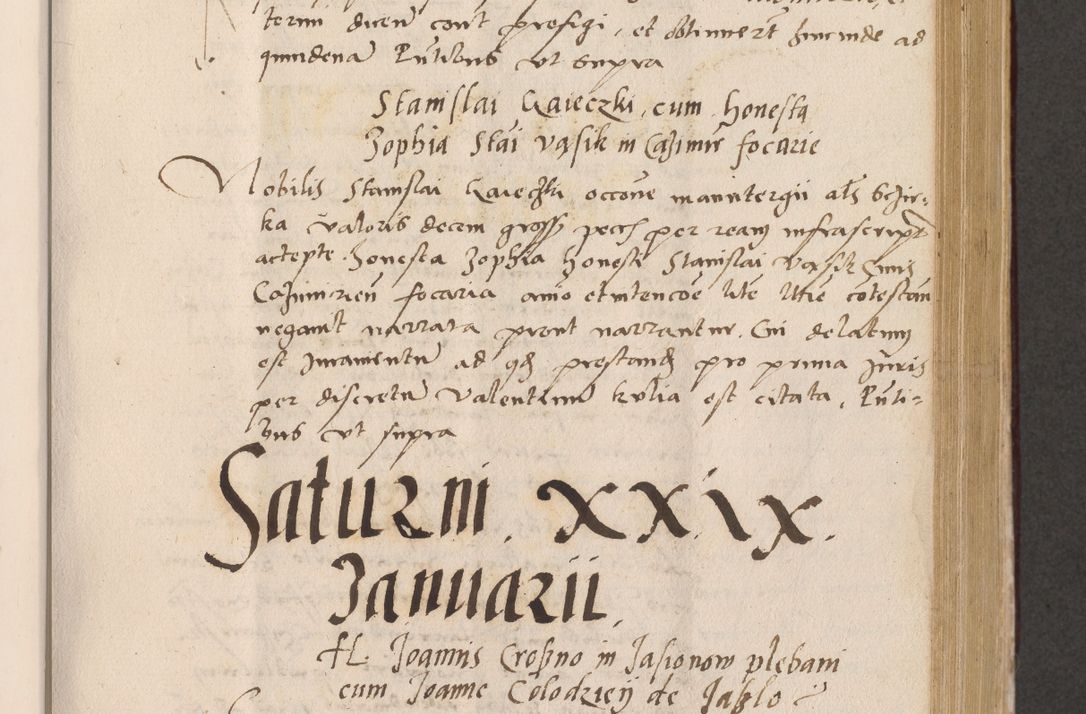 termi dicen cont prefigi, et obtinuert hincinde ad
quindena Pntibus vt supra
Stanislai Gaieczki, cum honesta
Zophia Stai Vasik in Casimir focarie
Nobilis Stanislai Gaieczki occone manntergii als Schir-
ka valoris decem gross pecc per ream infrascript
accepte. honesta Zophia honesti Stanislai Vasik huius
Casimirien focaria animo et intencoe lite litis cotestan
negauit narrata prout narrantur. Cui delatum
est Iuramentu ad qd prestand pro prima Iuris
per discretu Valentinu kulia est citata, Pnti-
bus vt supra
Saturni. XXIX.
Januarii.
Joannis Crosno in Jasionow plebani
cum Joanne Colodzieii de Jaslo